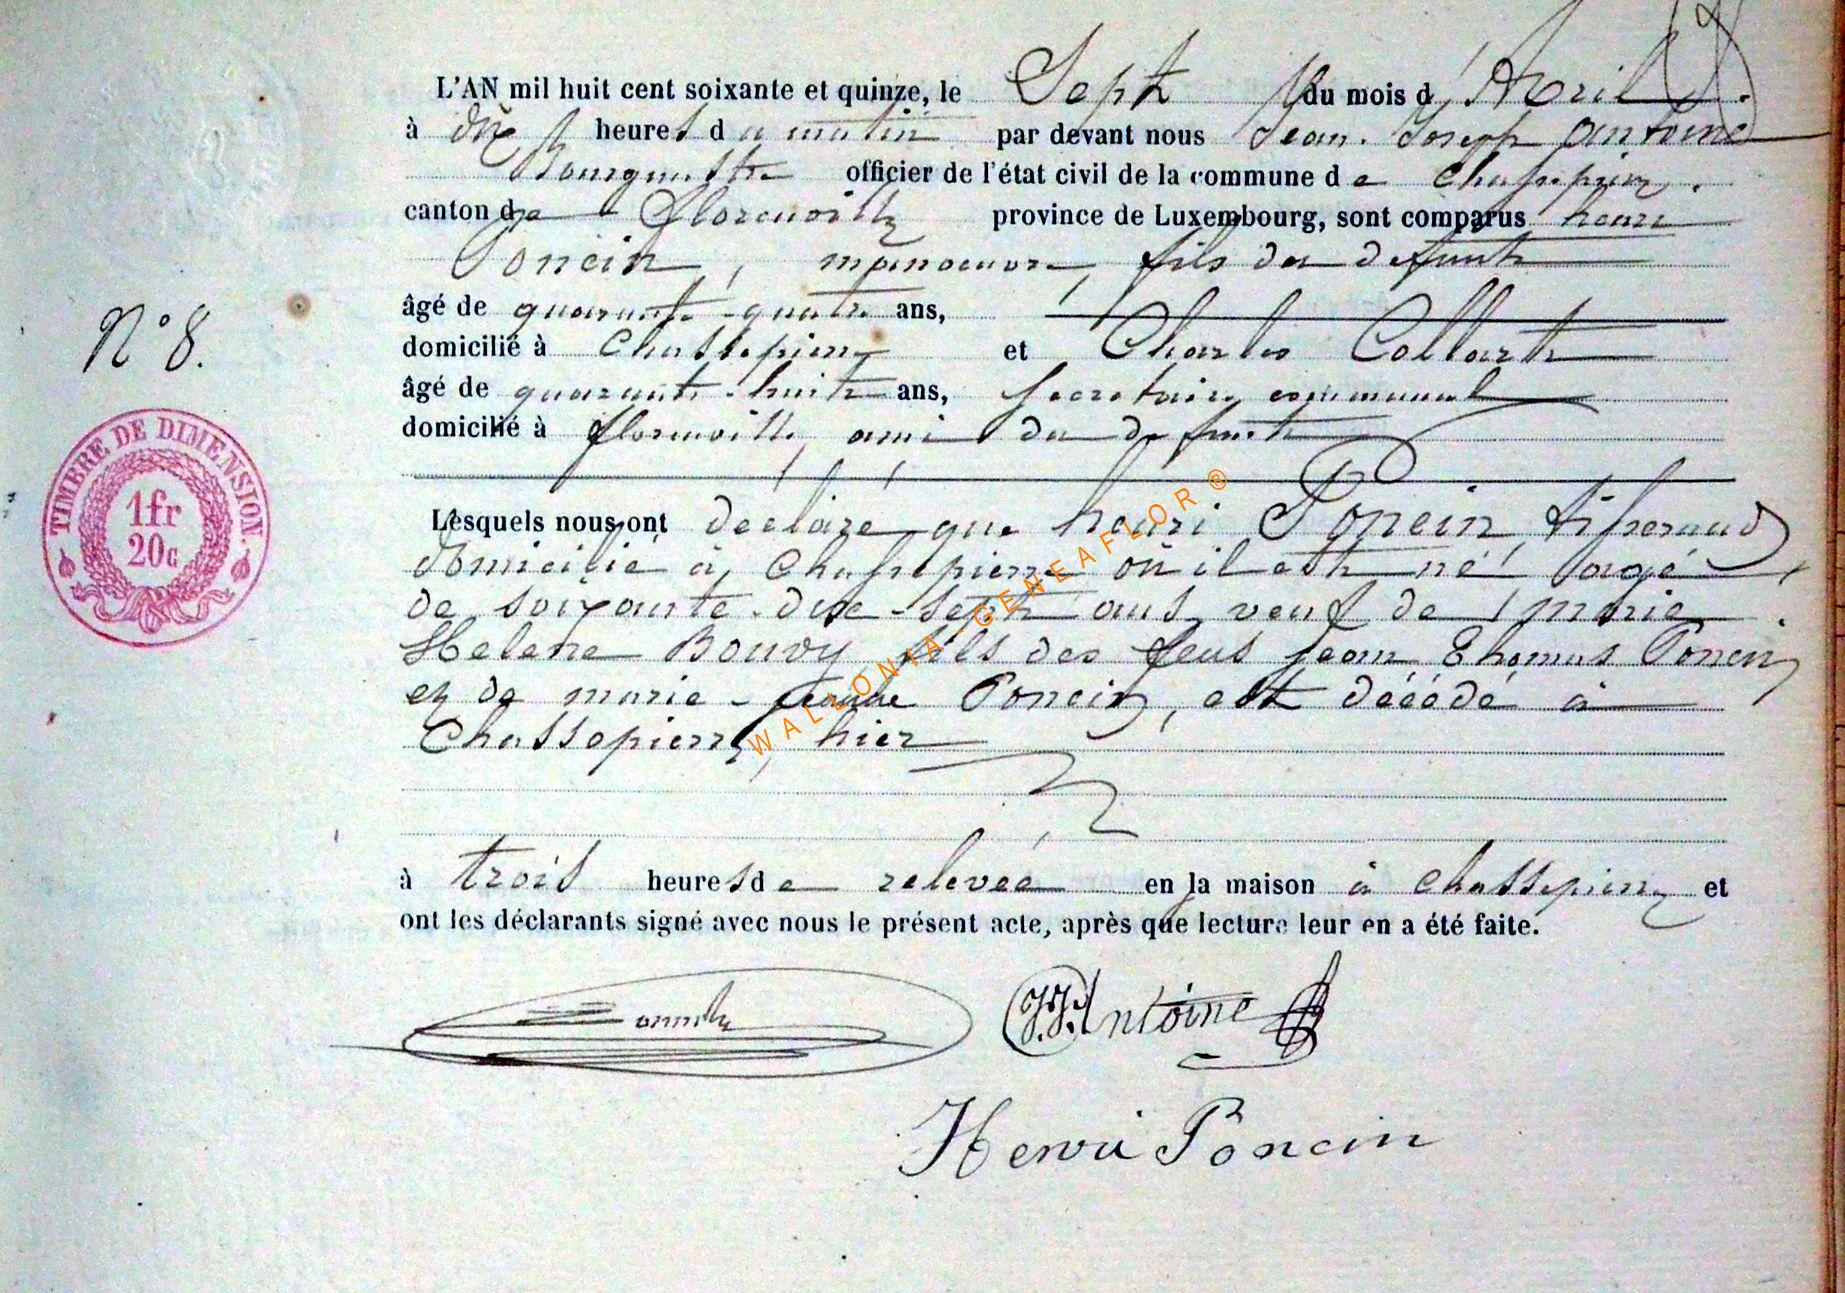 L'AN mil huit cent soixante et quinze, le Sept du mois d'Avril.
à dix heures du matin par devant nous Jean. Joseph Antoine
Bourgmestre officier de l'état civil de la commune de Chassepierre.
canton de Florenville province de Luxembourg, sont comparus henri
Poncin, manoeuvre, fils du defunt
âgé de quarante-quatre ans,
domicilié à Chassepierre et Charles Collart
âgé de quarante-huit ans, secretaire communal
domicilié à florenville, ami du defunt
Lesquels nous ont déclaré que henri Poncin, tisserand
domicilié à Chassepierre où il est né, agé
de soixante-dix-sept ans, veuf de marie
Helene Bouvy, fils des feus jean Thomas Poncin
et de marie-jeanne Poncin, est décédé à
Chassepierre, hier
à trois heures de relevée en la maison à chassepierre et
ont les déclarants signé avec nous le présent acte, après que lecture leur en a été faite.
J.J. Antoine
Henri Poncin
N° 8.
TIMBRE DE DIMENSION.
1fr
20c
WALLONIA-GENEAFLOR ®